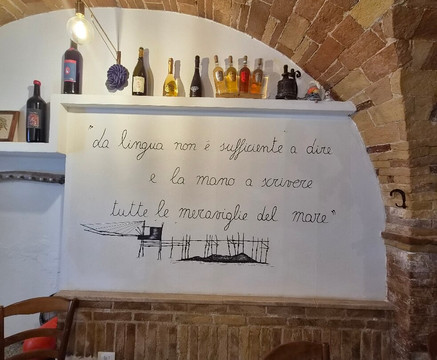 "La lingua non è sufficiente a dire
e la mano a scrivere
tutte le meraviglie del mare"